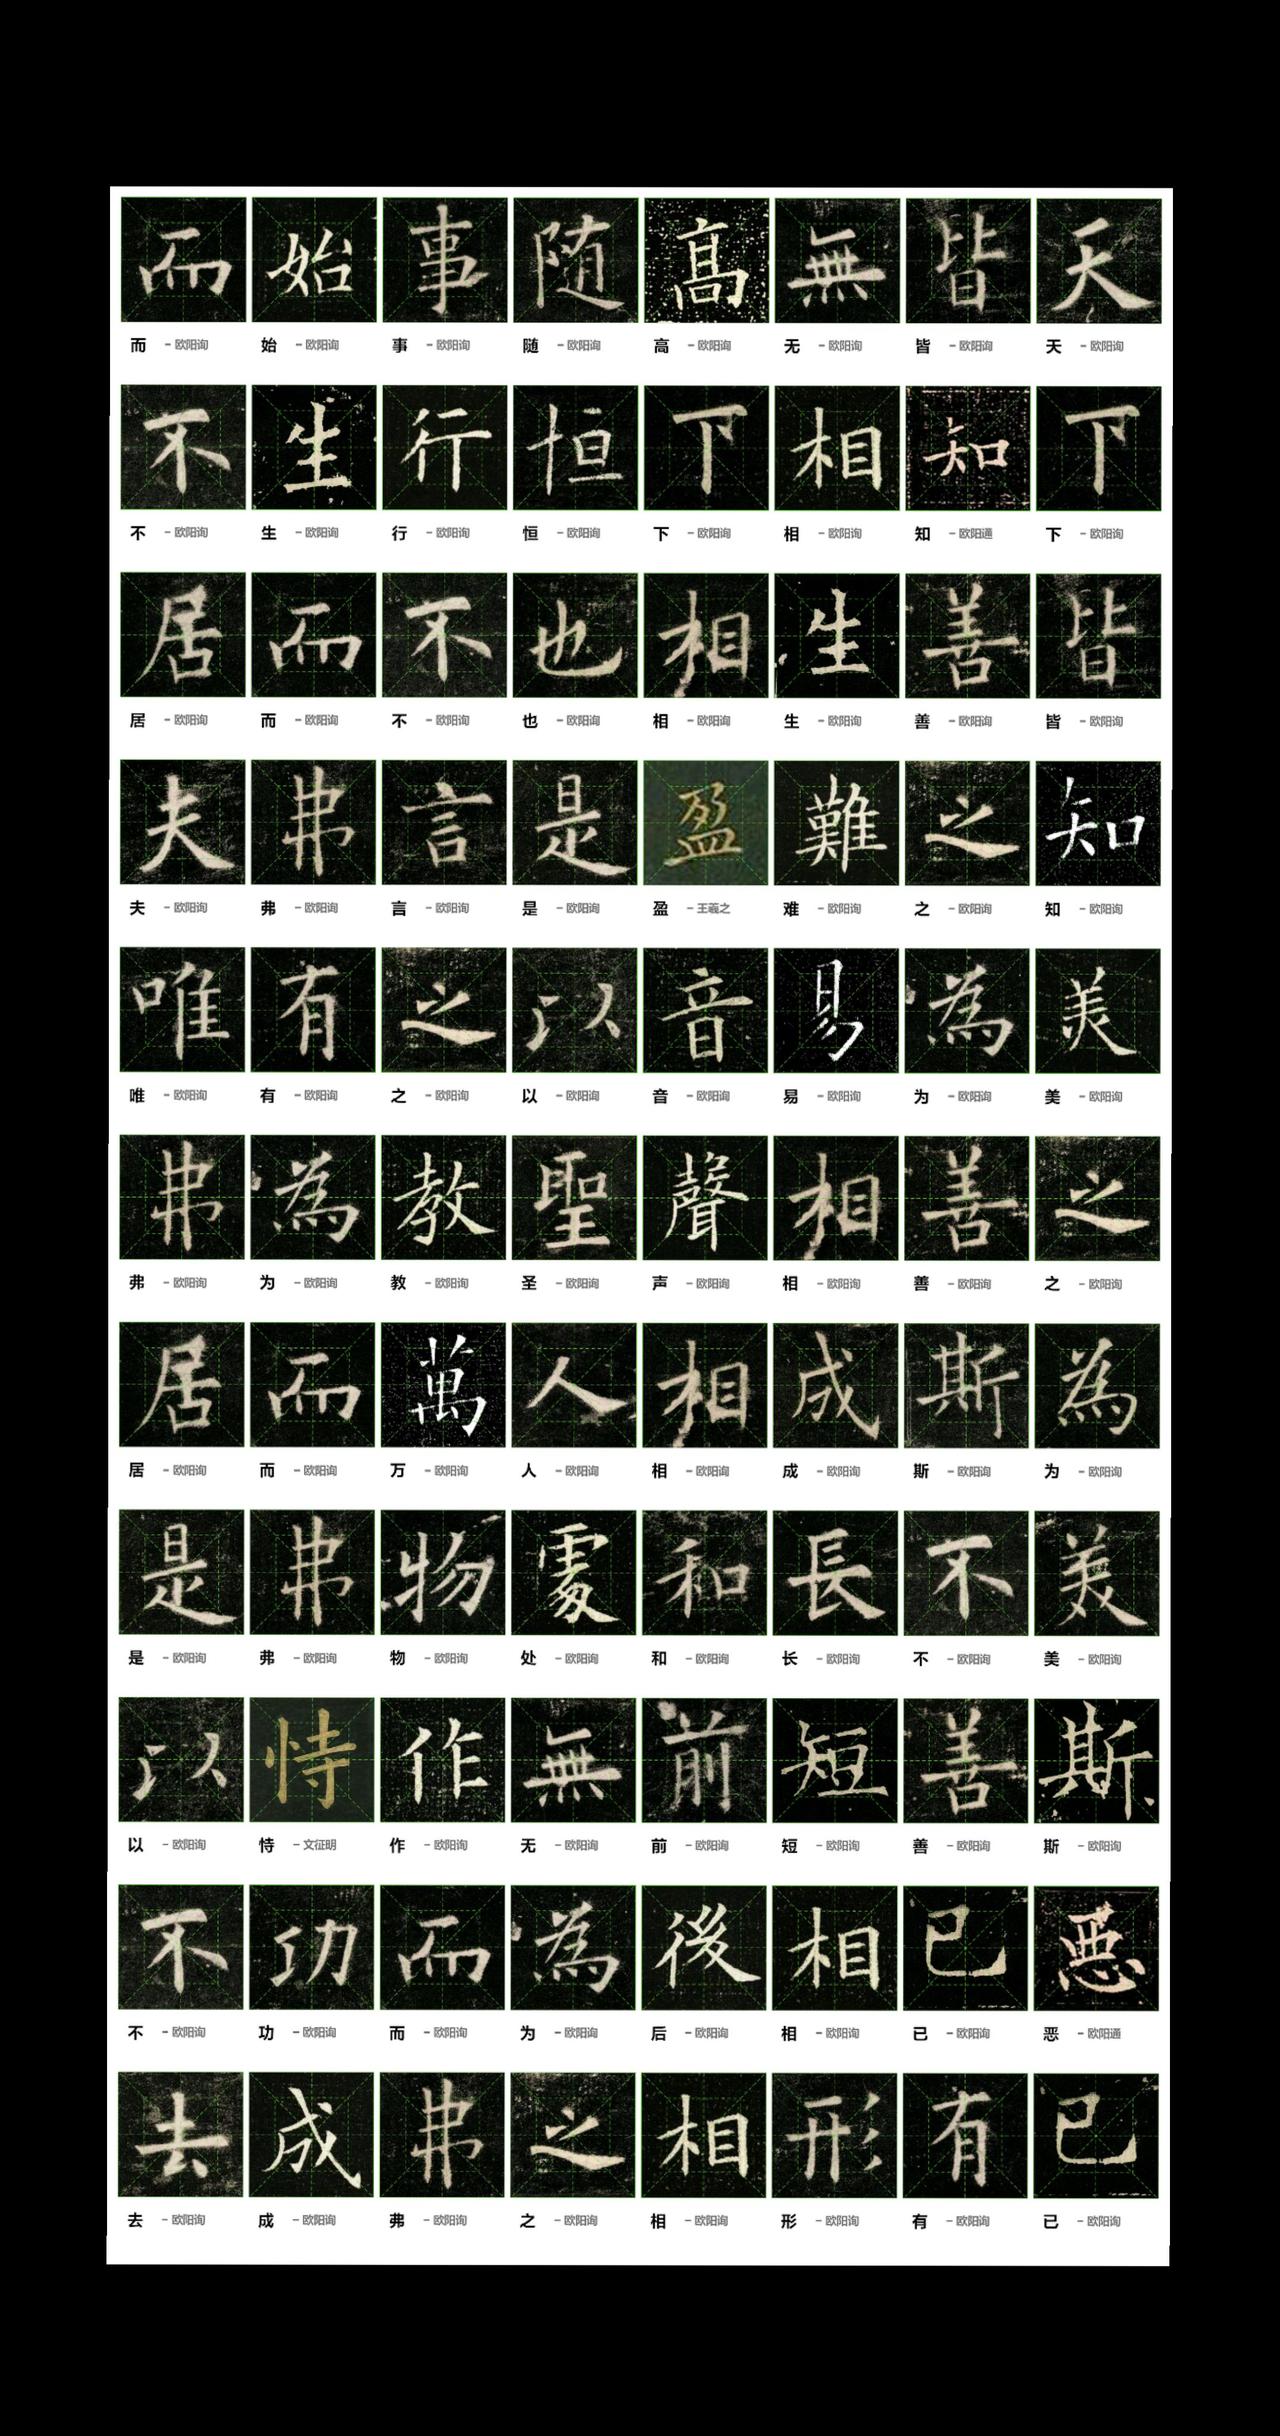 天下皆知美之為美斯惡已
皆知善之為善斯不善已有
無相生難易相成長短相形
高下相盈音聲相和前後相
随恒也是以聖人處無為之
事行不言之教萬物作而弗
始生而弗有為而弗恃功成
而不居夫唯弗居是以不去
而 - 欧阳询 始 - 欧阳询 事 - 欧阳询 随 - 欧阳询 高 - 欧阳询 无 - 欧阳询 皆 - 欧阳询 天 - 欧阳询
不 - 欧阳询 生 - 欧阳询 行 - 欧阳询 恒 - 欧阳询 下 - 欧阳询 相 - 欧阳询 知 - 欧阳通 下 - 欧阳询
居 - 欧阳询 而 - 欧阳询 不 - 欧阳询 也 - 欧阳询 相 - 欧阳询 生 - 欧阳询 善 - 欧阳询 皆 - 欧阳询
夫 - 欧阳询 弗 - 欧阳询 言 - 欧阳询 是 - 欧阳询 盈 - 王羲之 难 - 欧阳询 之 - 欧阳询 知 - 欧阳询
唯 - 欧阳询 有 - 欧阳询 之 - 欧阳询 以 - 欧阳询 音 - 欧阳询 易 - 欧阳询 为 - 欧阳询 美 - 欧阳询
弗 - 欧阳询 为 - 欧阳询 教 - 欧阳询 圣 - 欧阳询 声 - 欧阳询 相 - 欧阳询 善 - 欧阳询 之 - 欧阳询
居 - 欧阳询 而 - 欧阳询 万 - 欧阳询 人 - 欧阳询 相 - 欧阳询 成 - 欧阳询 斯 - 欧阳询 为 - 欧阳询
是 - 欧阳询 弗 - 欧阳询 物 - 欧阳询 处 - 欧阳询 和 - 欧阳询 长 - 欧阳询 不 - 欧阳询 美 - 欧阳询
以 - 欧阳询 恃 - 文征明 作 - 欧阳询 无 - 欧阳询 前 - 欧阳询 短 - 欧阳询 善 - 欧阳询 斯 - 欧阳询
不 - 欧阳询 功 - 欧阳询 而 - 欧阳询 为 - 欧阳询 后 - 欧阳询 相 - 欧阳询 已 - 欧阳询 恶 - 欧阳通
去 - 欧阳询 成 - 欧阳询 弗 - 欧阳询 之 - 欧阳询 相 - 欧阳询 形 - 欧阳询 有 - 欧阳询 已 - 欧阳询